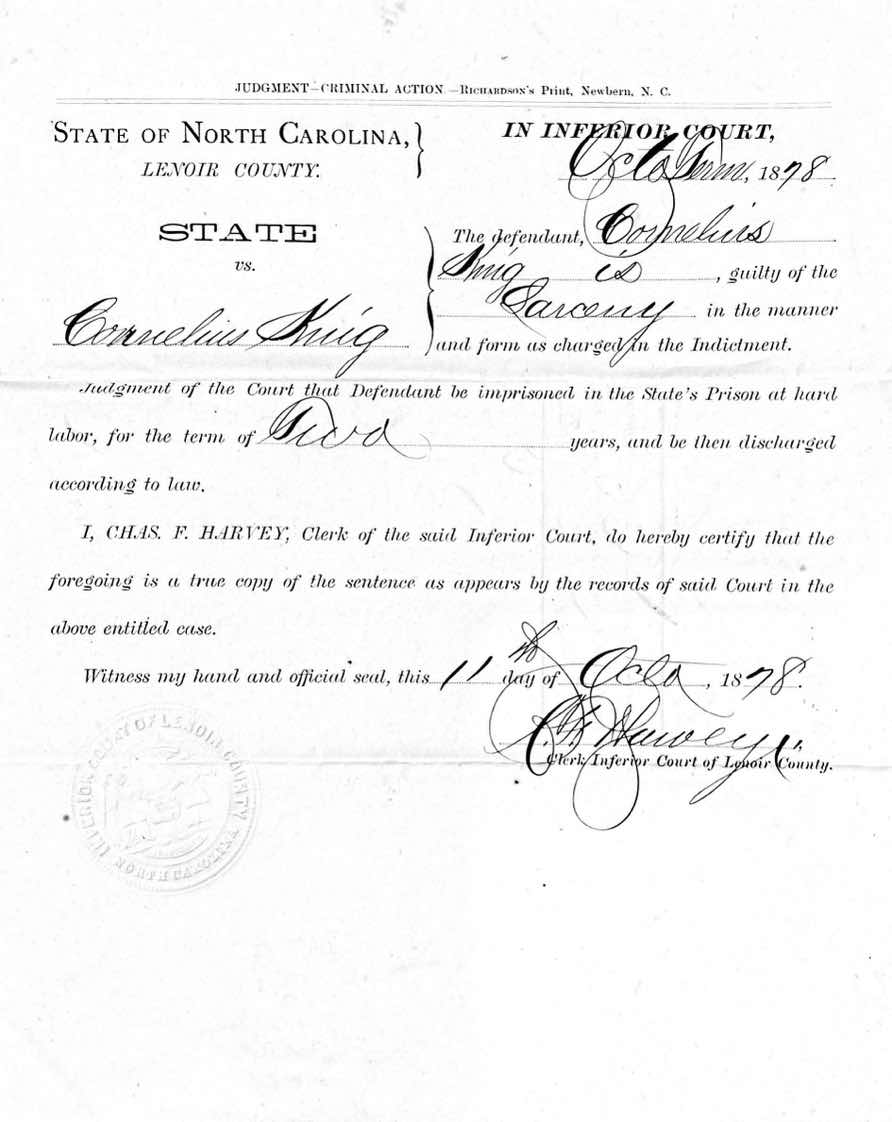 JUDGMENT—CRIMINAL ACTION.—RICHARDSON'S Print, Newbern, N. C.
STATE OF NORTH CAROLINA,
LENOIR COUNTY.
IN INFERIOR COURT,
Octo Term, 1878.
STATE
vs.
Cornelius King
The defendant, Cornelius
King is, guilty of the
Larceny in the manner
and form as charged in the Indictment.
Judgment of the Court that Defendant be imprisoned in the State's Prison at hard
labor, for the term of Two years, and be then discharged
according to law.
I, CHAS. F. HARVEY, Clerk of the said Inferior Court, do hereby certify that the
foregoing is a true copy of the sentence as appears by the records of said Court in the
above entitled case.
Witness my hand and official seal, this 11th day of Octo, 1878.
C. F. Harvey
Clerk Inferior Court of Lenoir County.
INFERIOR COURT OF LENOIR COUNTY
NORTH CAROLINA